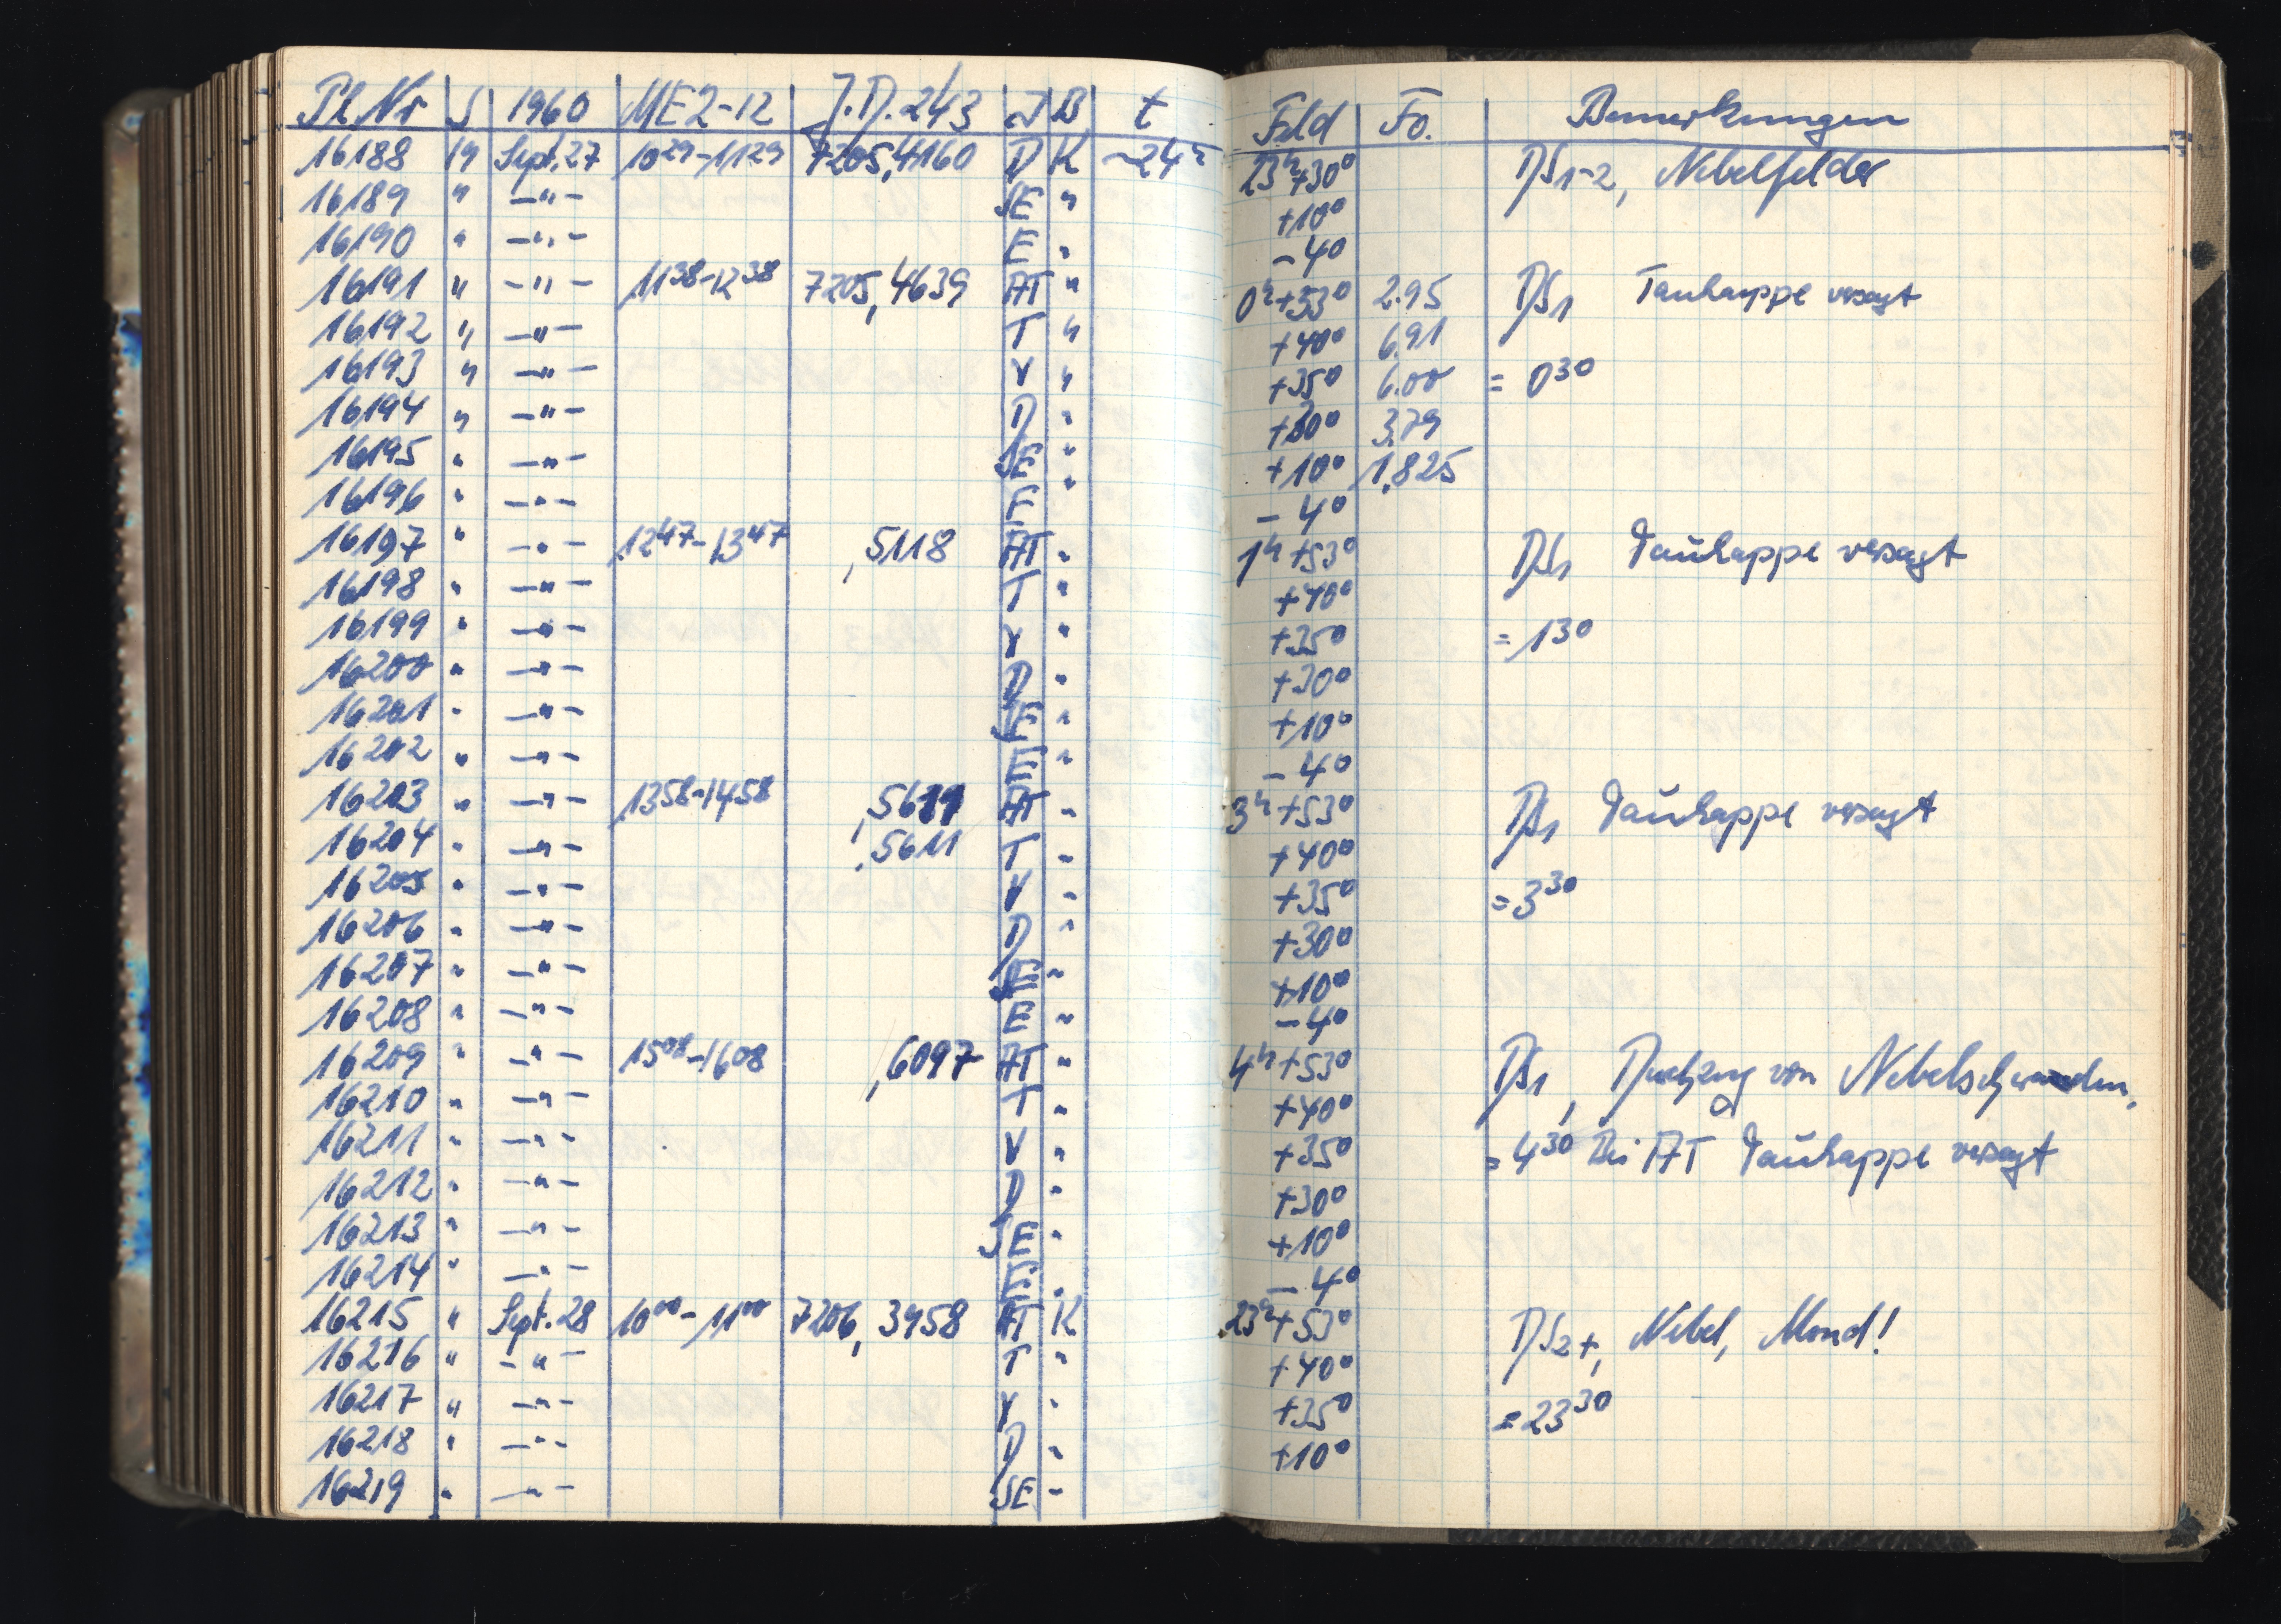 Pl.Nr S 1960 ME2-12 J.D. 243 J B t Feld Fo. Bemerkungen
16188 19 Sept. 27 10 29-11 29 7205,4160 D K ~24h 23h+30° DS1-2, Nebelfelder
16189 " -"- SE " +10°
16190 " -"- E " -4°
16191 " -"- 11 38-12 38 7205,4639 AT " 0h+53° 2.95 DS1 Taukappe versagt
16192 " -"- T " +40° 6.91
16193 " -"- V " +35° 6.00 = 0 30
16194 " -"- D " +30° 3.79
16195 " -"- SE " +10° 1.825
16196 " -"- E " -4°
16197 " -"- 12 47-13 47 ,5118 AT " 1h+53° DS1 Taukappe versagt
16198 " -"- T " +40°
16199 " -"- V " +35° = 1 30
16200 " -"- D " +30°
16201 " -"- SE " +10°
16202 " -"- E " -4°
16203 " -"- 13 58-14 58 ,5611 AT " 3h+53° DS1 Taukappe versagt
16204 " -"- ,5611 T " +40°
16205 " -"- V " +35° = 3 30
16206 " -"- D " +30°
16207 " -"- SE " +10°
16208 " -"- E " -4°
16209 " -"- 15 08-16 08 ,6097 AT " 4h+53° DS1, Durchzug von Nebelschwaden,
16210 " -"- T " +40°
16211 " -"- V " +35° = 4 30 Bei AT Taukappe versagt
16212 " -"- D " +30°
16213 " -"- SE " +10°
16214 " -"- E " -4°
16215 " Sept. 28 10 00-11 00 7206,3458 AT K 23h+53° DS2+, Nebel, Mond!
16216 " -"- T " +40°
16217 " -"- V " +35° = 23 30
16218 " -"- D " +10°
16219 " -"- SE "